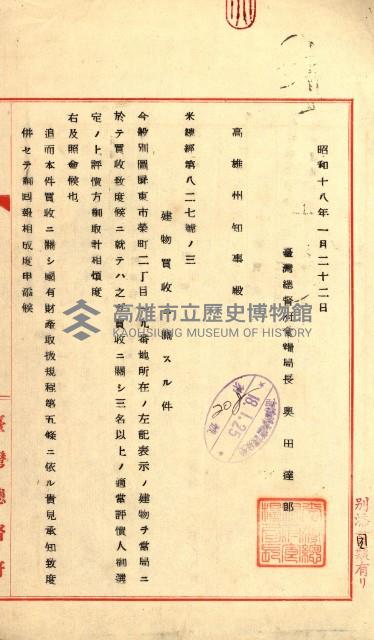 昭和十八年一月二十二日
臺灣總督府食糧局長 奥田達郎
高雄州知事殿
米總經第八二七號ノ三
建物買收ニ關スル件
今般別圖屏東市榮町二丁目 九番地所在ノ左記表示ノ建物ヲ當局ニ
於テ買收致度候ニ就テハ之 買收ニ關シ三名以上ノ適當評價人御選
定ノ上評價方御取計相煩度
右及照會候也
追而本件買收ニ關シ國有財產取扱規程第五條ニ依ル貴見承知致度
併セテ御回報相成度申添候
臺灣總督府
別添 有リ
18.1.25
高雄市立歷史博物館
KAOHSIUNG MUSEUM OF HISTORY